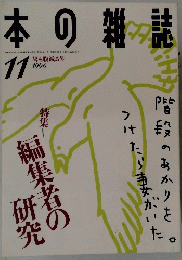 本の雑誌
11
1996
特集=
編集者の
研究
階段のあかりを
つけたら妻がいた。